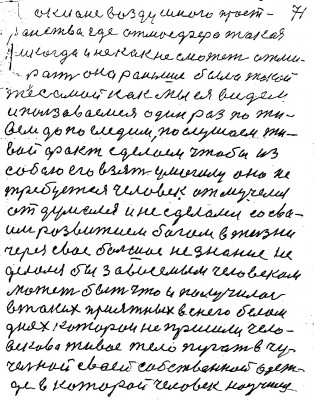 океане воздушного прост- 71
ранства где атмосфера такая
никогда и не как не сможет отми-
рать она раньше была такой
же самой как мы ея видем
и ползоваемся один раз по жи-
вем до последим, послушаем жи-
вой факт сделаем чтобы из
собаю его взять умолишу оно не
требуется человек отмучелил
отдумался и не сделали со сва-
им розвитием богом в жизни
через свое болшое не знание не
делали бы зависемым человекам
может быть что и получилос
в таких приятных в снего белом
днях которои не пришли чело-
векова живое тело пугать в чу-
чолной своей собственной одеж-
де в которой человек научил